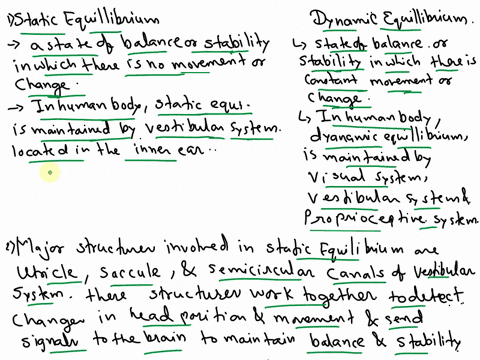 1) Static Equillibrium
→ a state of balance or stability
in which there is no movement or
change.
→ In human body, static equi.
is maintained by vestibular system.
located in the inner ear..
Dynamic Equilibrium.
↳ state of balance. or
stability in which there is
constant movement or
change.
↳ In human body,
dyanamic equilibrium,
is maintained by
visual system,
vestibular system &
proprioceptive system
2) Major structures involved in static Equilibrium are
utricle, saccule, & semicircular canals of vestibular
system. there structures work together to detect
changes in head position & movement & send
signals to the brain to maintain balance & stability